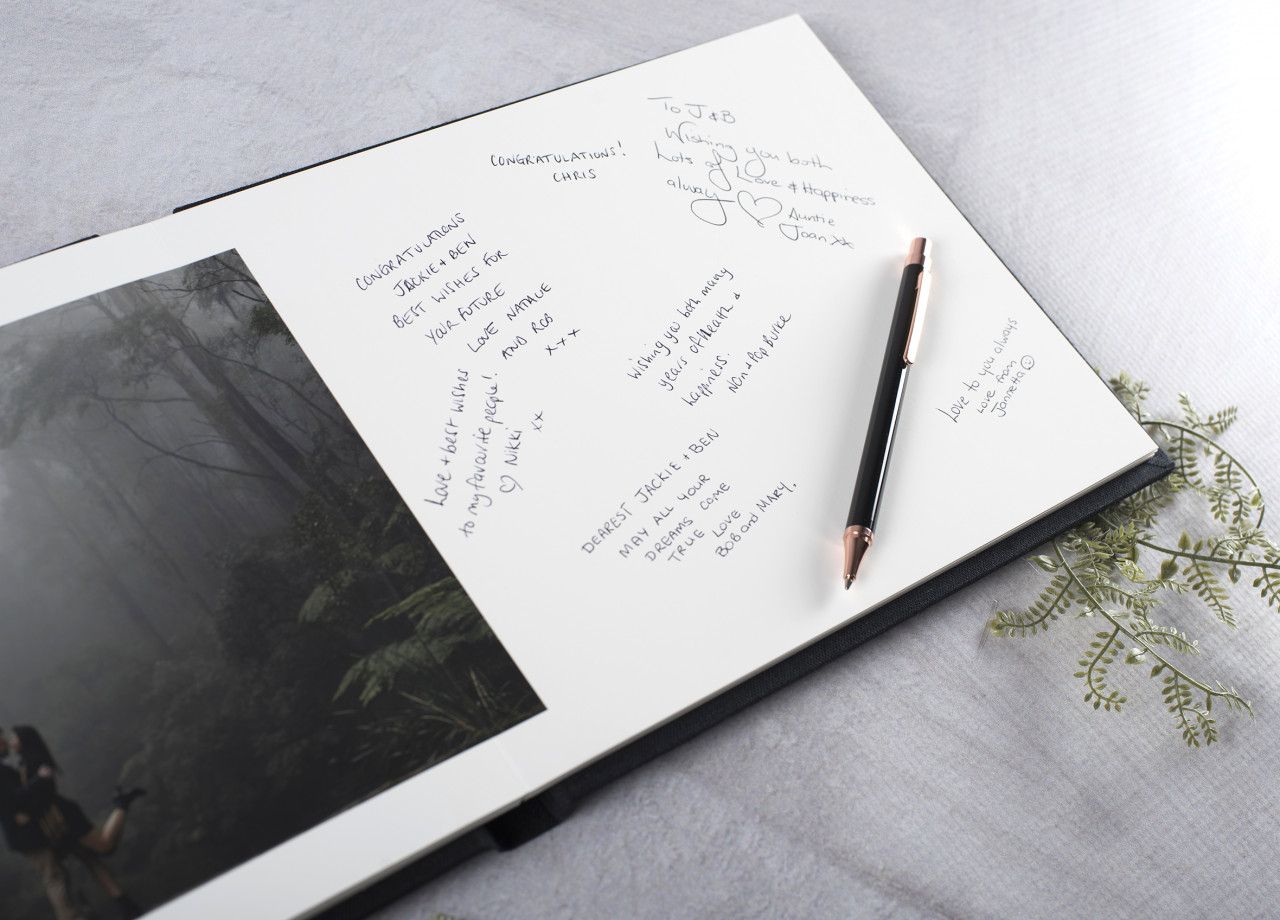 CONGRATULATIONS!
CHRIS
To J & B
Wishing you both
Lots of Love & Happiness
always ♡ Auntie
Joan xx
CONGRATULATIONS
JACKIE + BEN
BEST WISHES FOR
YOUR FUTURE
LOVE NATALIE
AND ROB
x x x
Wishing you both many
years of Health &
happiness.
Nan & Pop Burke
Love to you always
Love from
Jannetta ☺
Love + best wishes
to my favourite people!
♡ Nikki
xx
DEAREST JACKIE + BEN
MAY ALL YOUR
DREAMS COME
TRUE LOVE
BOB and MARY.